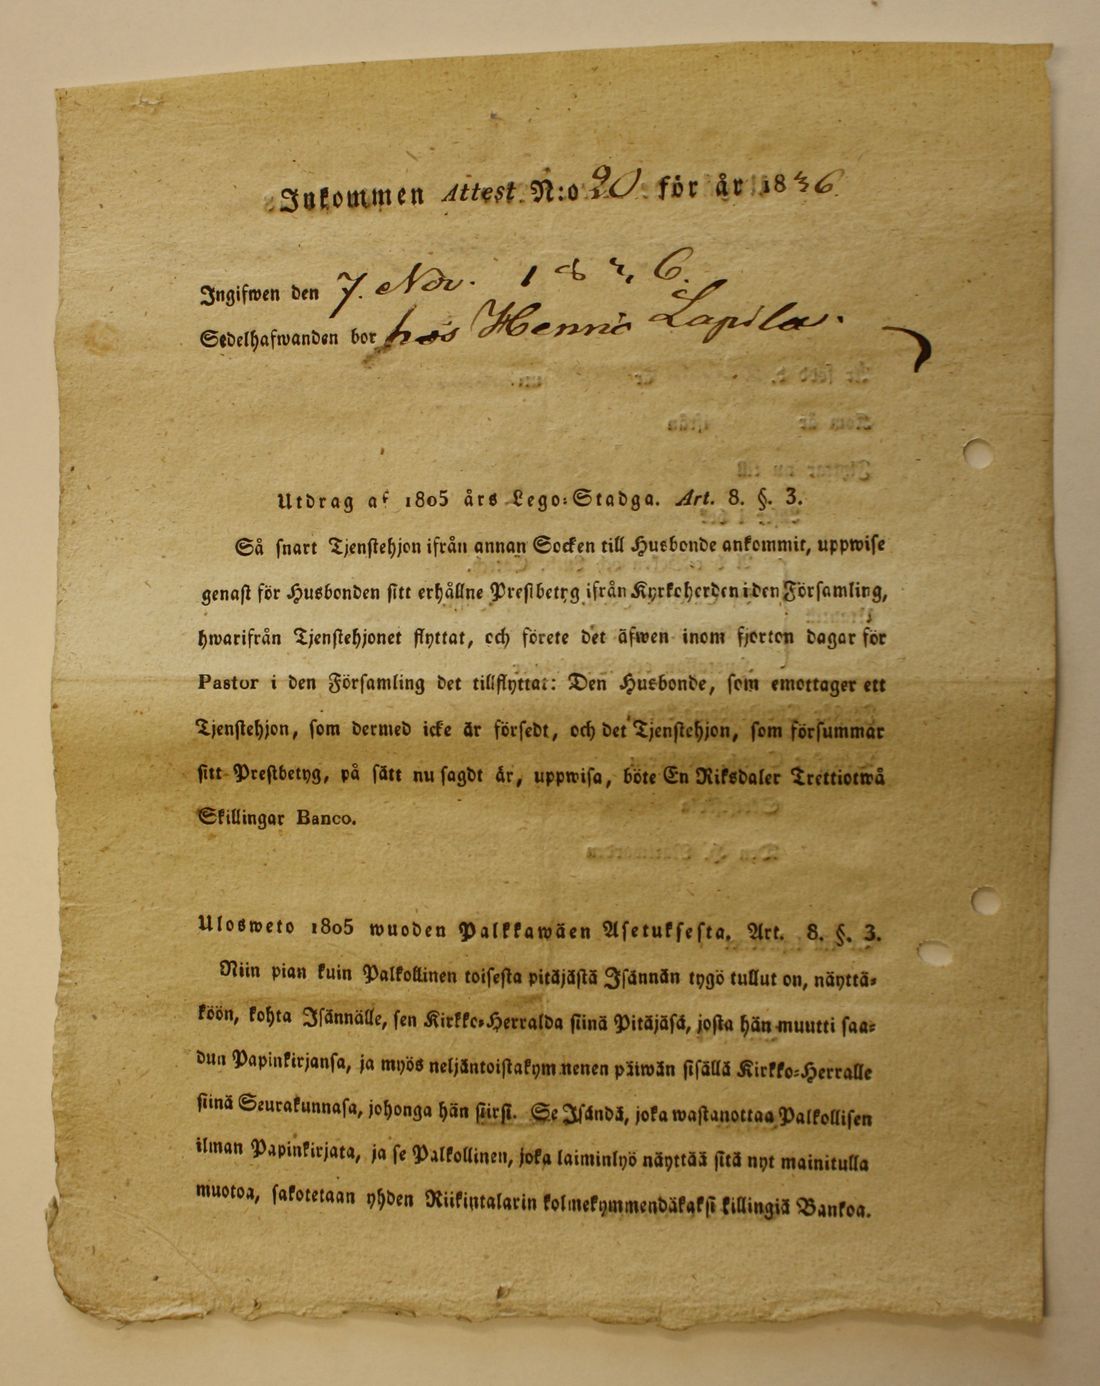 Inkommen Attest N:o 20 för år 1836.
Ingifwen den 7. Nov. 1836.
Sedelhafwanden bor hos Henric Lapila.
Utdrag af 1805 års Lego-Stadga. Art. 8. §. 3.
Så snart Tjenstehjon ifrån annan Socken till Husbonde ankommit, uppwise
genast för Husbonden sitt erhållne Prestbetyg ifrån Kyrkoherden i den Församling,
hwarifrån Tjenstehjonet flyttat, och förete det äfwen inom fjorton dagar för
Pastor i den Församling det tillflyttat: Den Husbonde, som emottager ett
Tjenstehjon, som dermed icke är försedt, och det Tjenstehjon, som försummar
sitt Prestbetyg, på sätt nu sagdt är, uppwisa, böte En Riksdaler Trettiotwå
Skillingar Banco.
Ulosweto 1805 wuoden Palkkawäen Asetuksesta. Art. 8. §. 3.
Niin pian kuin Palkollinen toisesta pitäjästä Isännän tygö tullut on, näyttä-
köön, kohta Isännälle, sen Kirkko-Herralda siinä Pitäjäsä, josta hän muutti saa-
dun Papinkirjansa, ja myös neljäntoistakymmenen päiwän sisällä Kirkko-Herralle
siinä Seurakunnasa, johonga hän siirsi. Se Isändä, joka wastanottaa Palkollisen
ilman Papinkirjata, ja se Palkollinen, joka laiminlyö näyttää sitä nyt mainitulla
muotoa, sakotetaan yhden Riikintalarin kolmekymmendäkaksi killingiä Bankoa.